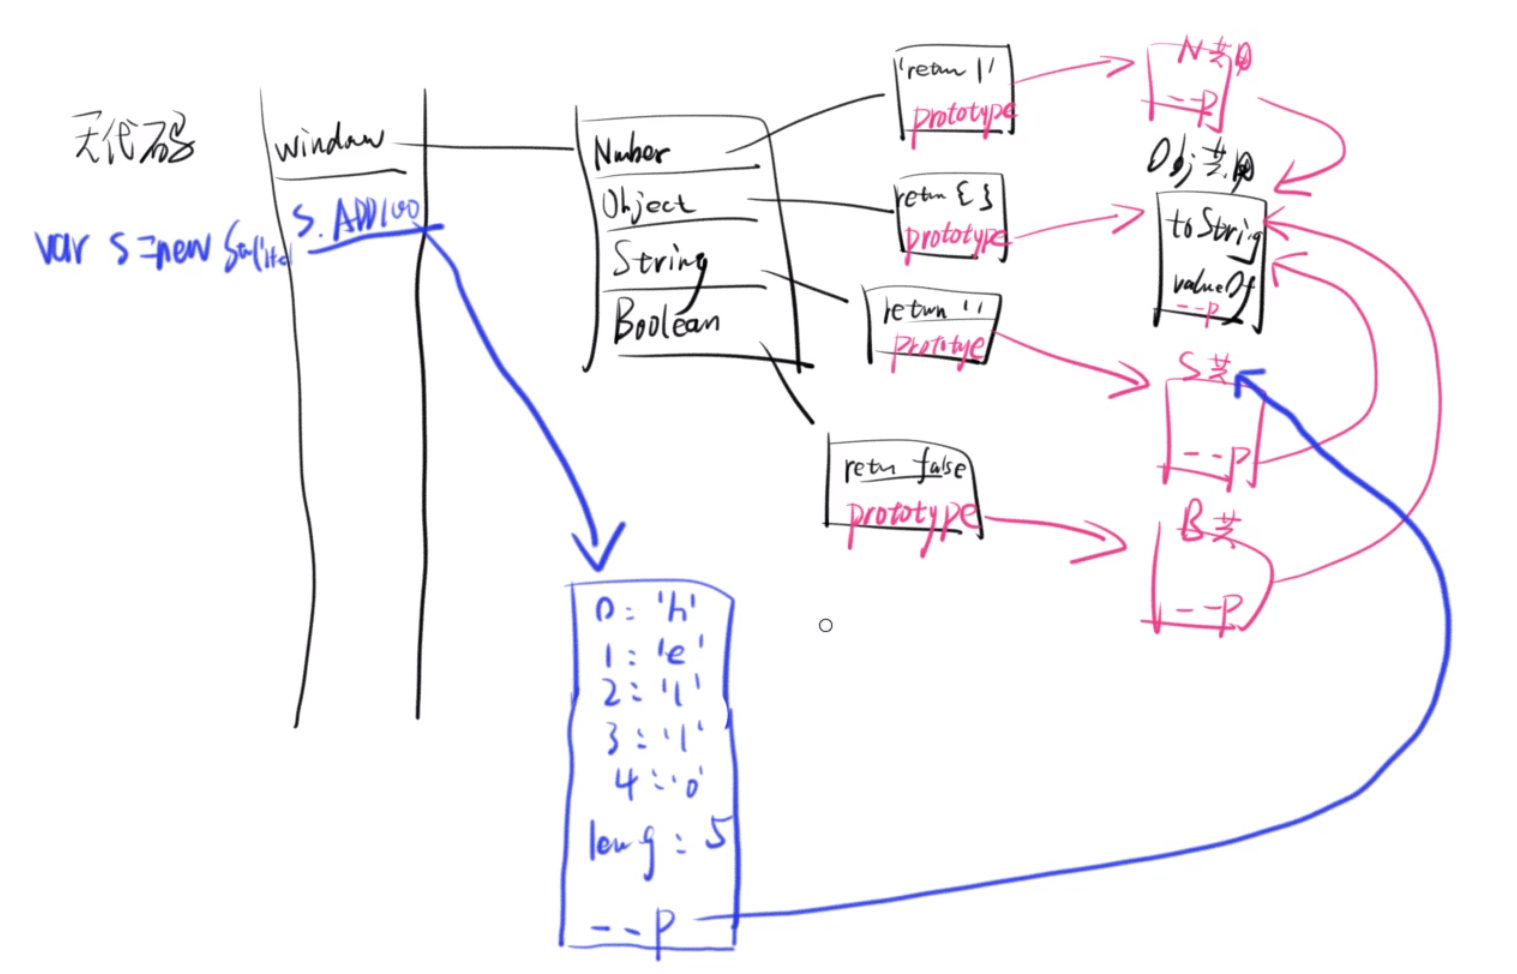 无代码
window
s. ADD100
var s=new
Number
Object
String
Boolean
'return 1'
prototype
retun { }
prototype
return ''
prototye
retun false
prototype
N共
--p
Obj共
toString
valueOf
--p
S共
--p
B共
--p
0 : 'h'
1 : 'e'
2 : 'l'
3 : 'l'
4 : 'o'
leng : 5
--p